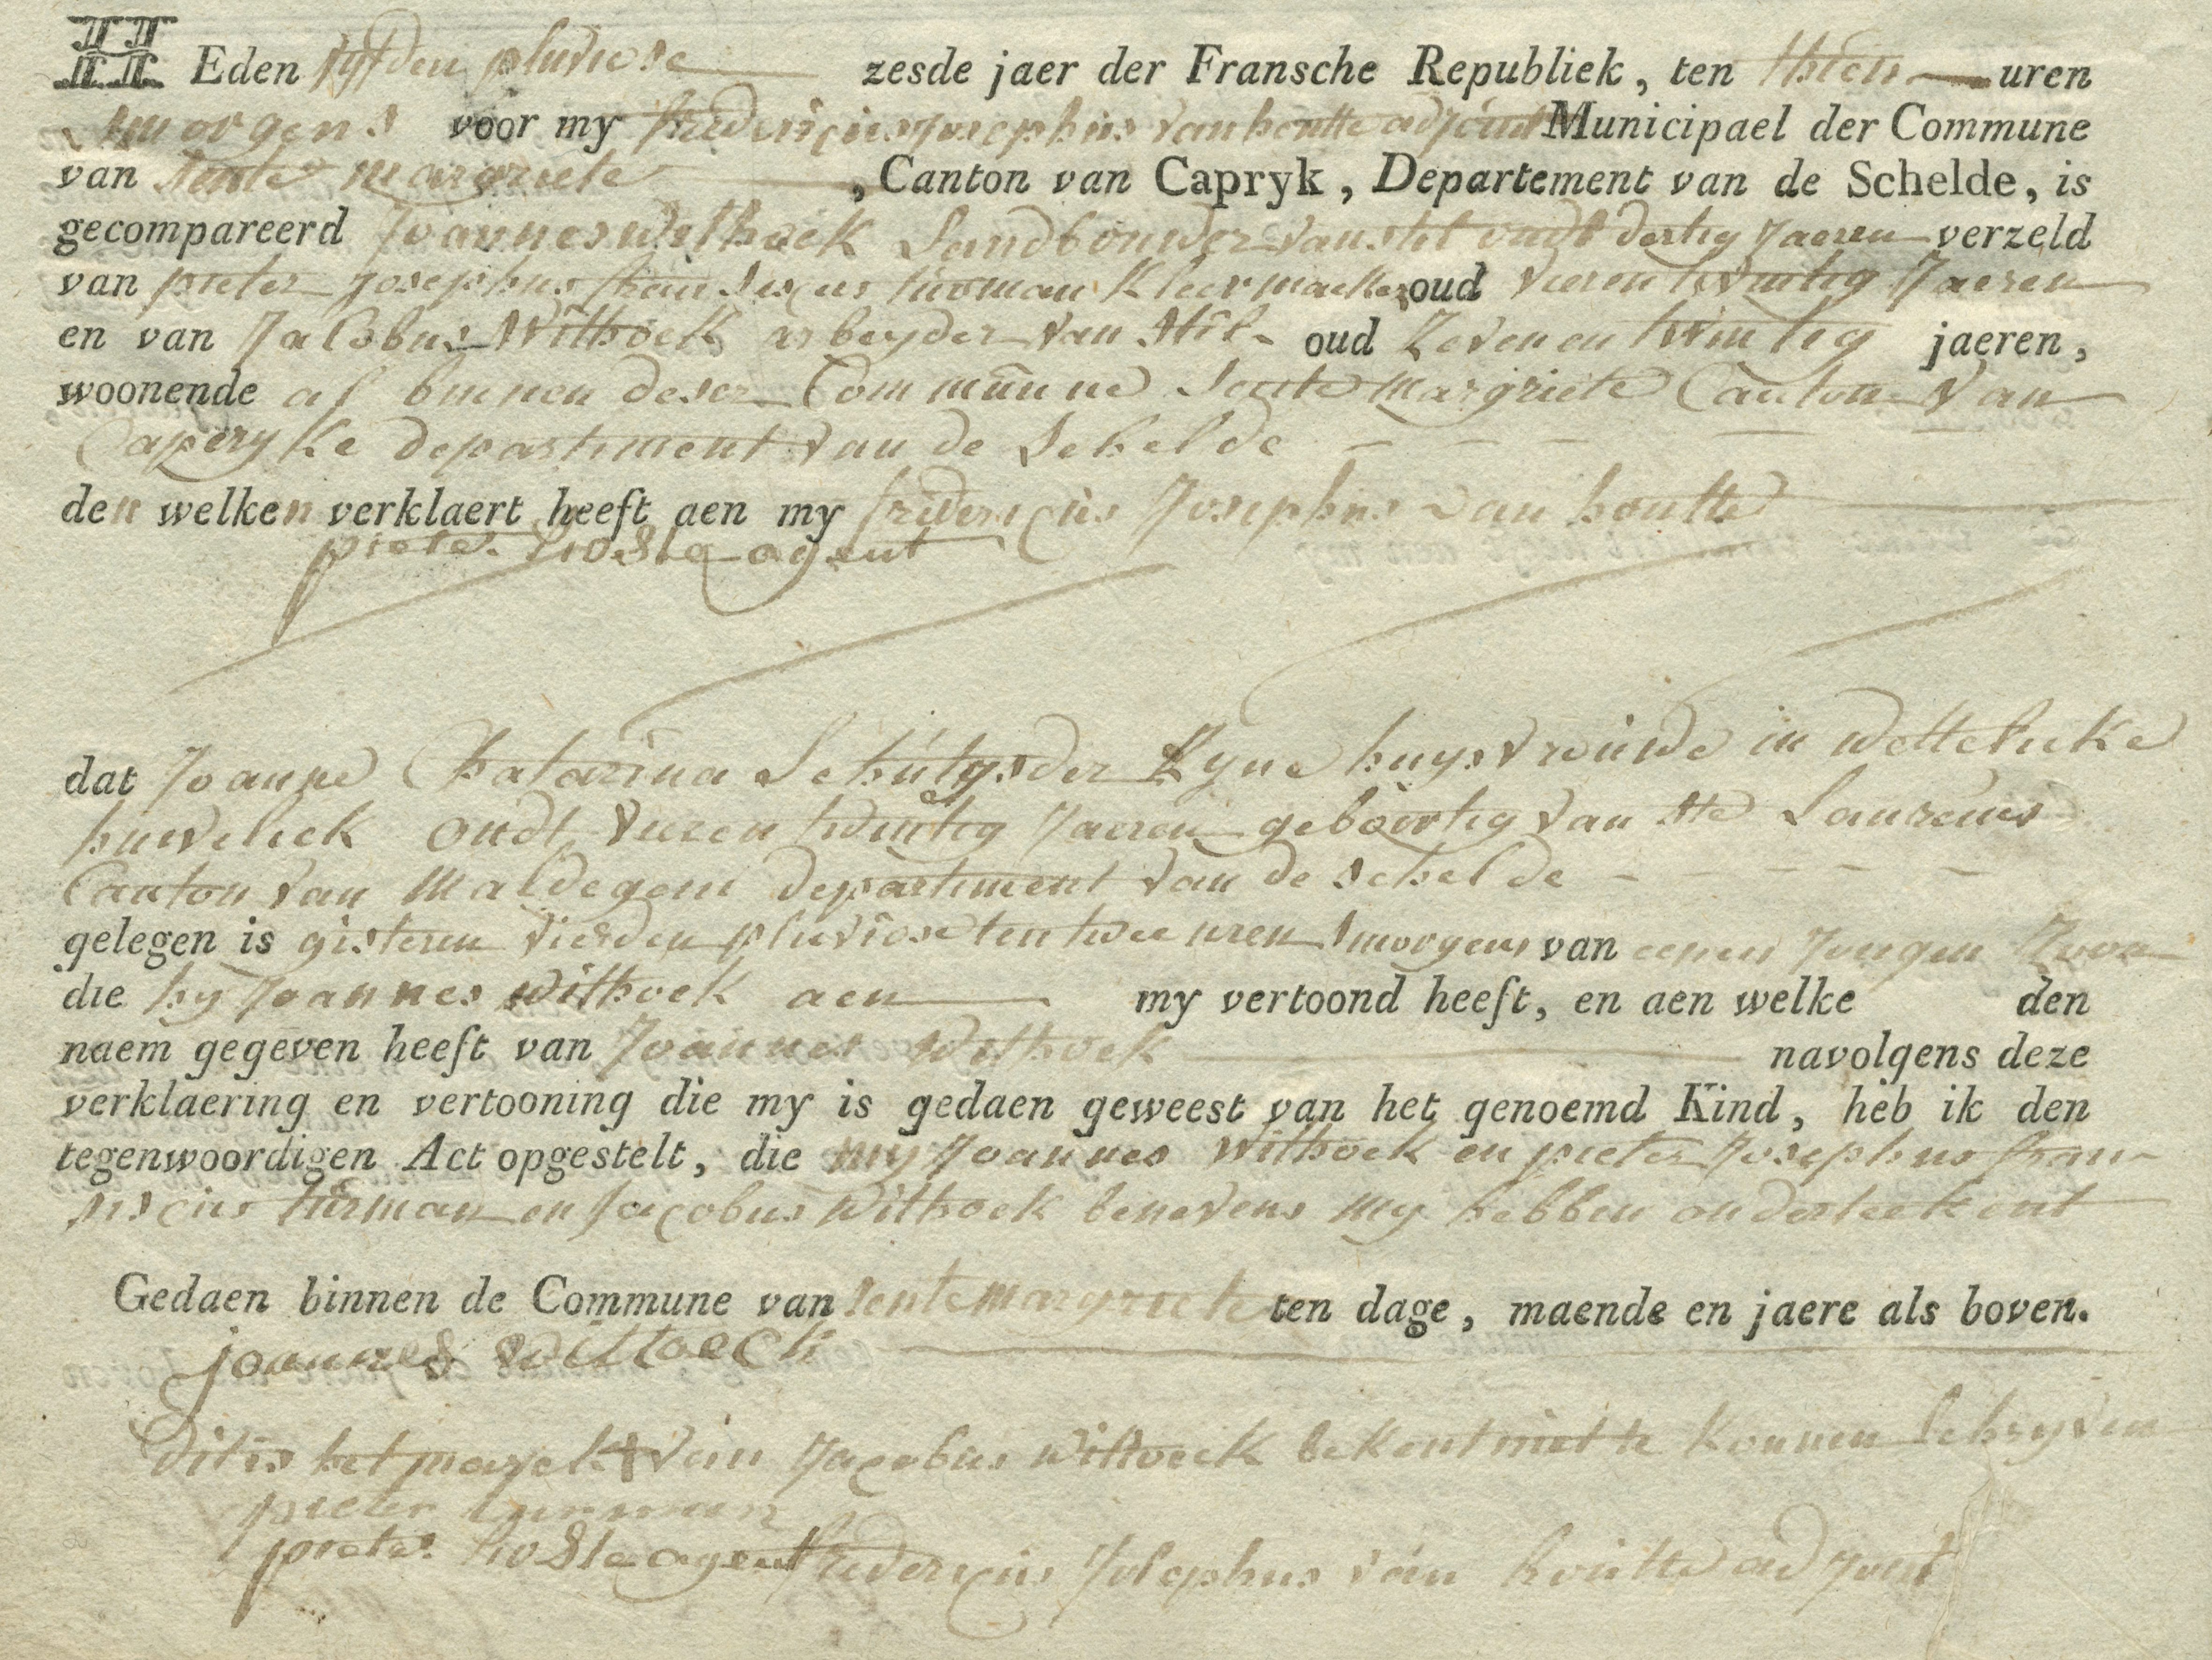 HEden vyfden pluviose zesde jaer der Fransche Republiek, ten thien uren
smorgens voor my fredericus josephus van houtte adjoint Municipael der Commune
van sente margriete, Canton van Capryk, Departement van de Schelde, is
gecompareerd Joannes Withoek Landbouwer van stil oudt dertig Jaeren verzeld
van pieter Josephus fransiscus turman kleermaeker oud vierentwintig Jaeren
en van Jacobus Withoek arbeyder van stil oud Zevenentwintig jaeren,
woonende al binnen deser Commune Sente Margriete Canton van
Capryke departement van de Schelde
den welken verklaert heeft aen my fredericus Josephus van houtte
pieter agent
dat Joanne Chatarina Schutyser der Zyne huysvrouwe in wettelicke
huwelick oudt vierentwintig Jaeren geboortig van ste Laureins
Canton van Maldegem departiment van de schelde
gelegen is gisteren vierden pluviose ten twee uren smorgens van eenen Jongen Zoon
die hy Joannes Withoek aen my vertoond heeft, en aen welke den
naem gegeven heeft van Joannes Withoek navolgens deze
verklaering en vertooning die my is gedaen geweest van het genoemd Kind, heb ik den
tegenwoordigen Act opgestelt, die my Joannes Withoek en pieter Josephus fran-
siscus turman en Jacobus Withoek benevens my hebben onderteekent
Gedaen binnen de Commune van sente margriete ten dage, maende en jaere als boven.
joannes wittoeck
Dit is het marck + van Jacobus Wittoeck bekent niet te konnen schryven
pieter turman
pieter agent fredericus Josephus van houtte adjoint